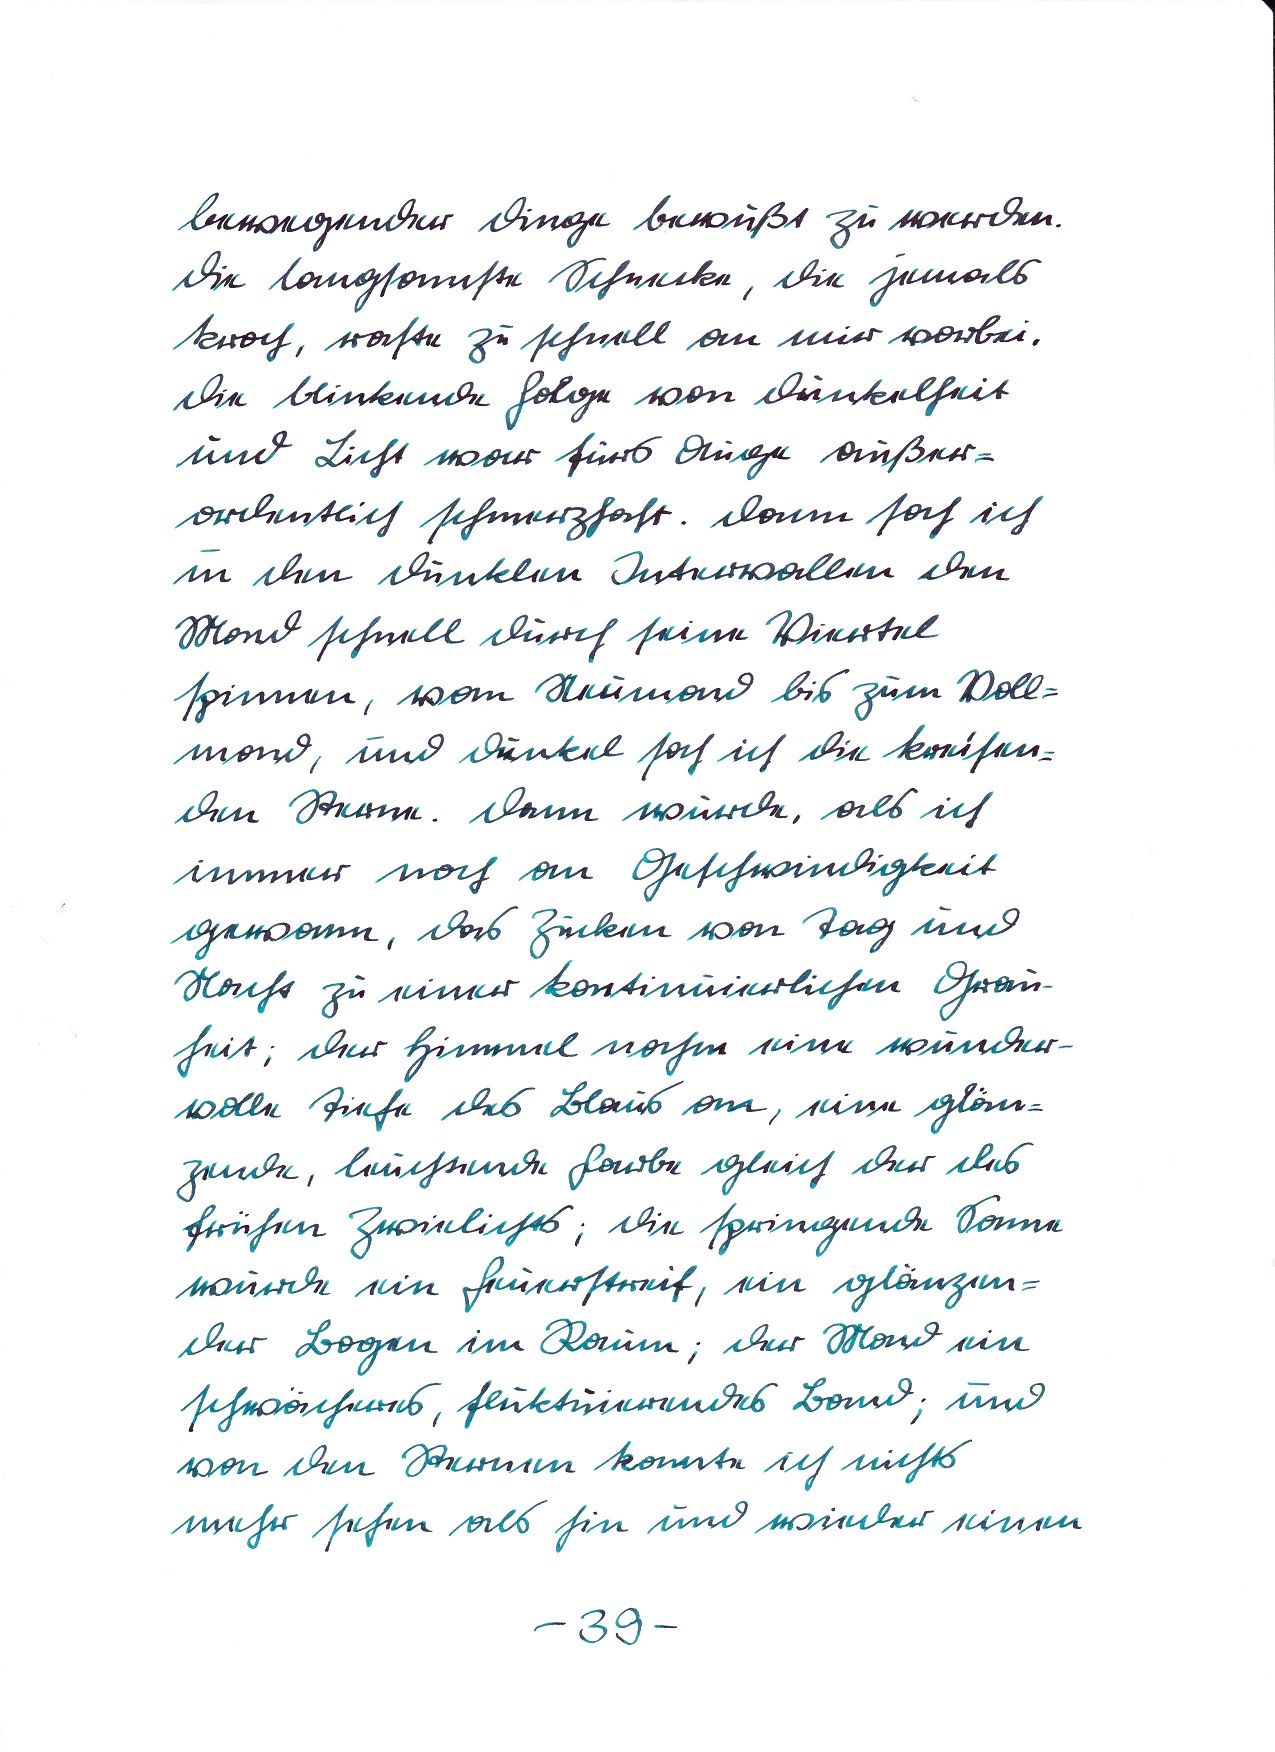 bewegender Dinge bewußt zu werden.
Die langsamste Schnecke, die jemals
kroch, raste zu schnell an mir vorbei.
Die blinkende Folge von Dunkelheit
und Licht war fürs Auge außer=
ordentlich schmerzhaft. Dann sah ich
in den dunklen Intervallen den
Mond schnell durch seine Viertel
spinnen, vom Neumond bis zum Voll=
mond, und dunkel sah ich die kreisen=
den Sterne. Dann wurde, als ich
immer noch an Geschwindigkeit
gewann, das Zucken von Tag und
Nacht zu einer kontinuierlichen Grau-
heit; der Himmel nahm eine wunder-
volle Tiefe des Blaus an, eine glän=
zende, leuchtende Farbe gleich der des
frühen Zwielichts; die springende Sonne
wurde ein Feuerstreif, ein glänzen=
der Bogen im Raum; der Mond ein
schwächeres, fluktuierendes Band; und
von den Sternen konnte ich nichts
mehr sehen als hin und wieder einen
-39-